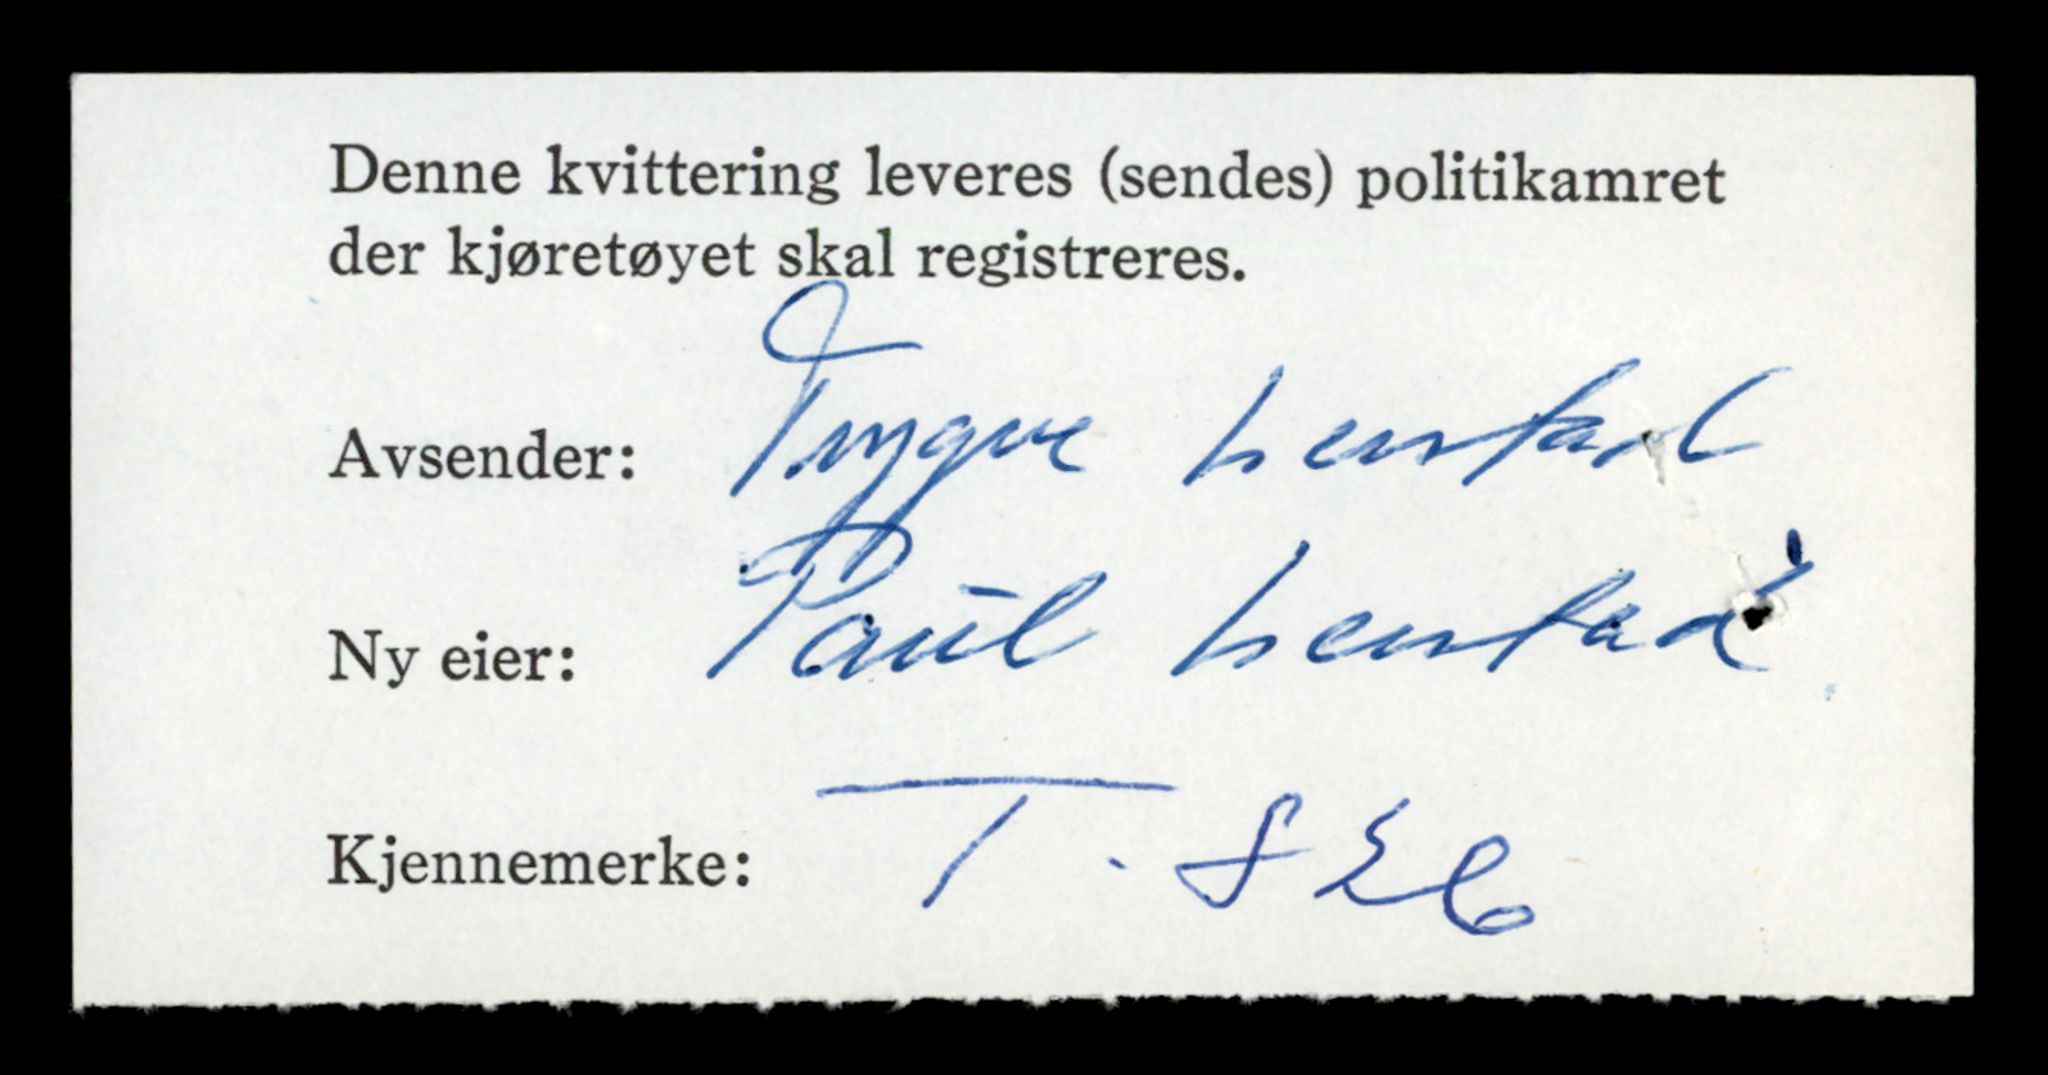 Denne kvittering leveres (sendes) politikamret
der kjøretøyet skal registreres.
Avsender: Trygve Leustad
Ny eier: Paul Leustad
Kjennemerke: T.